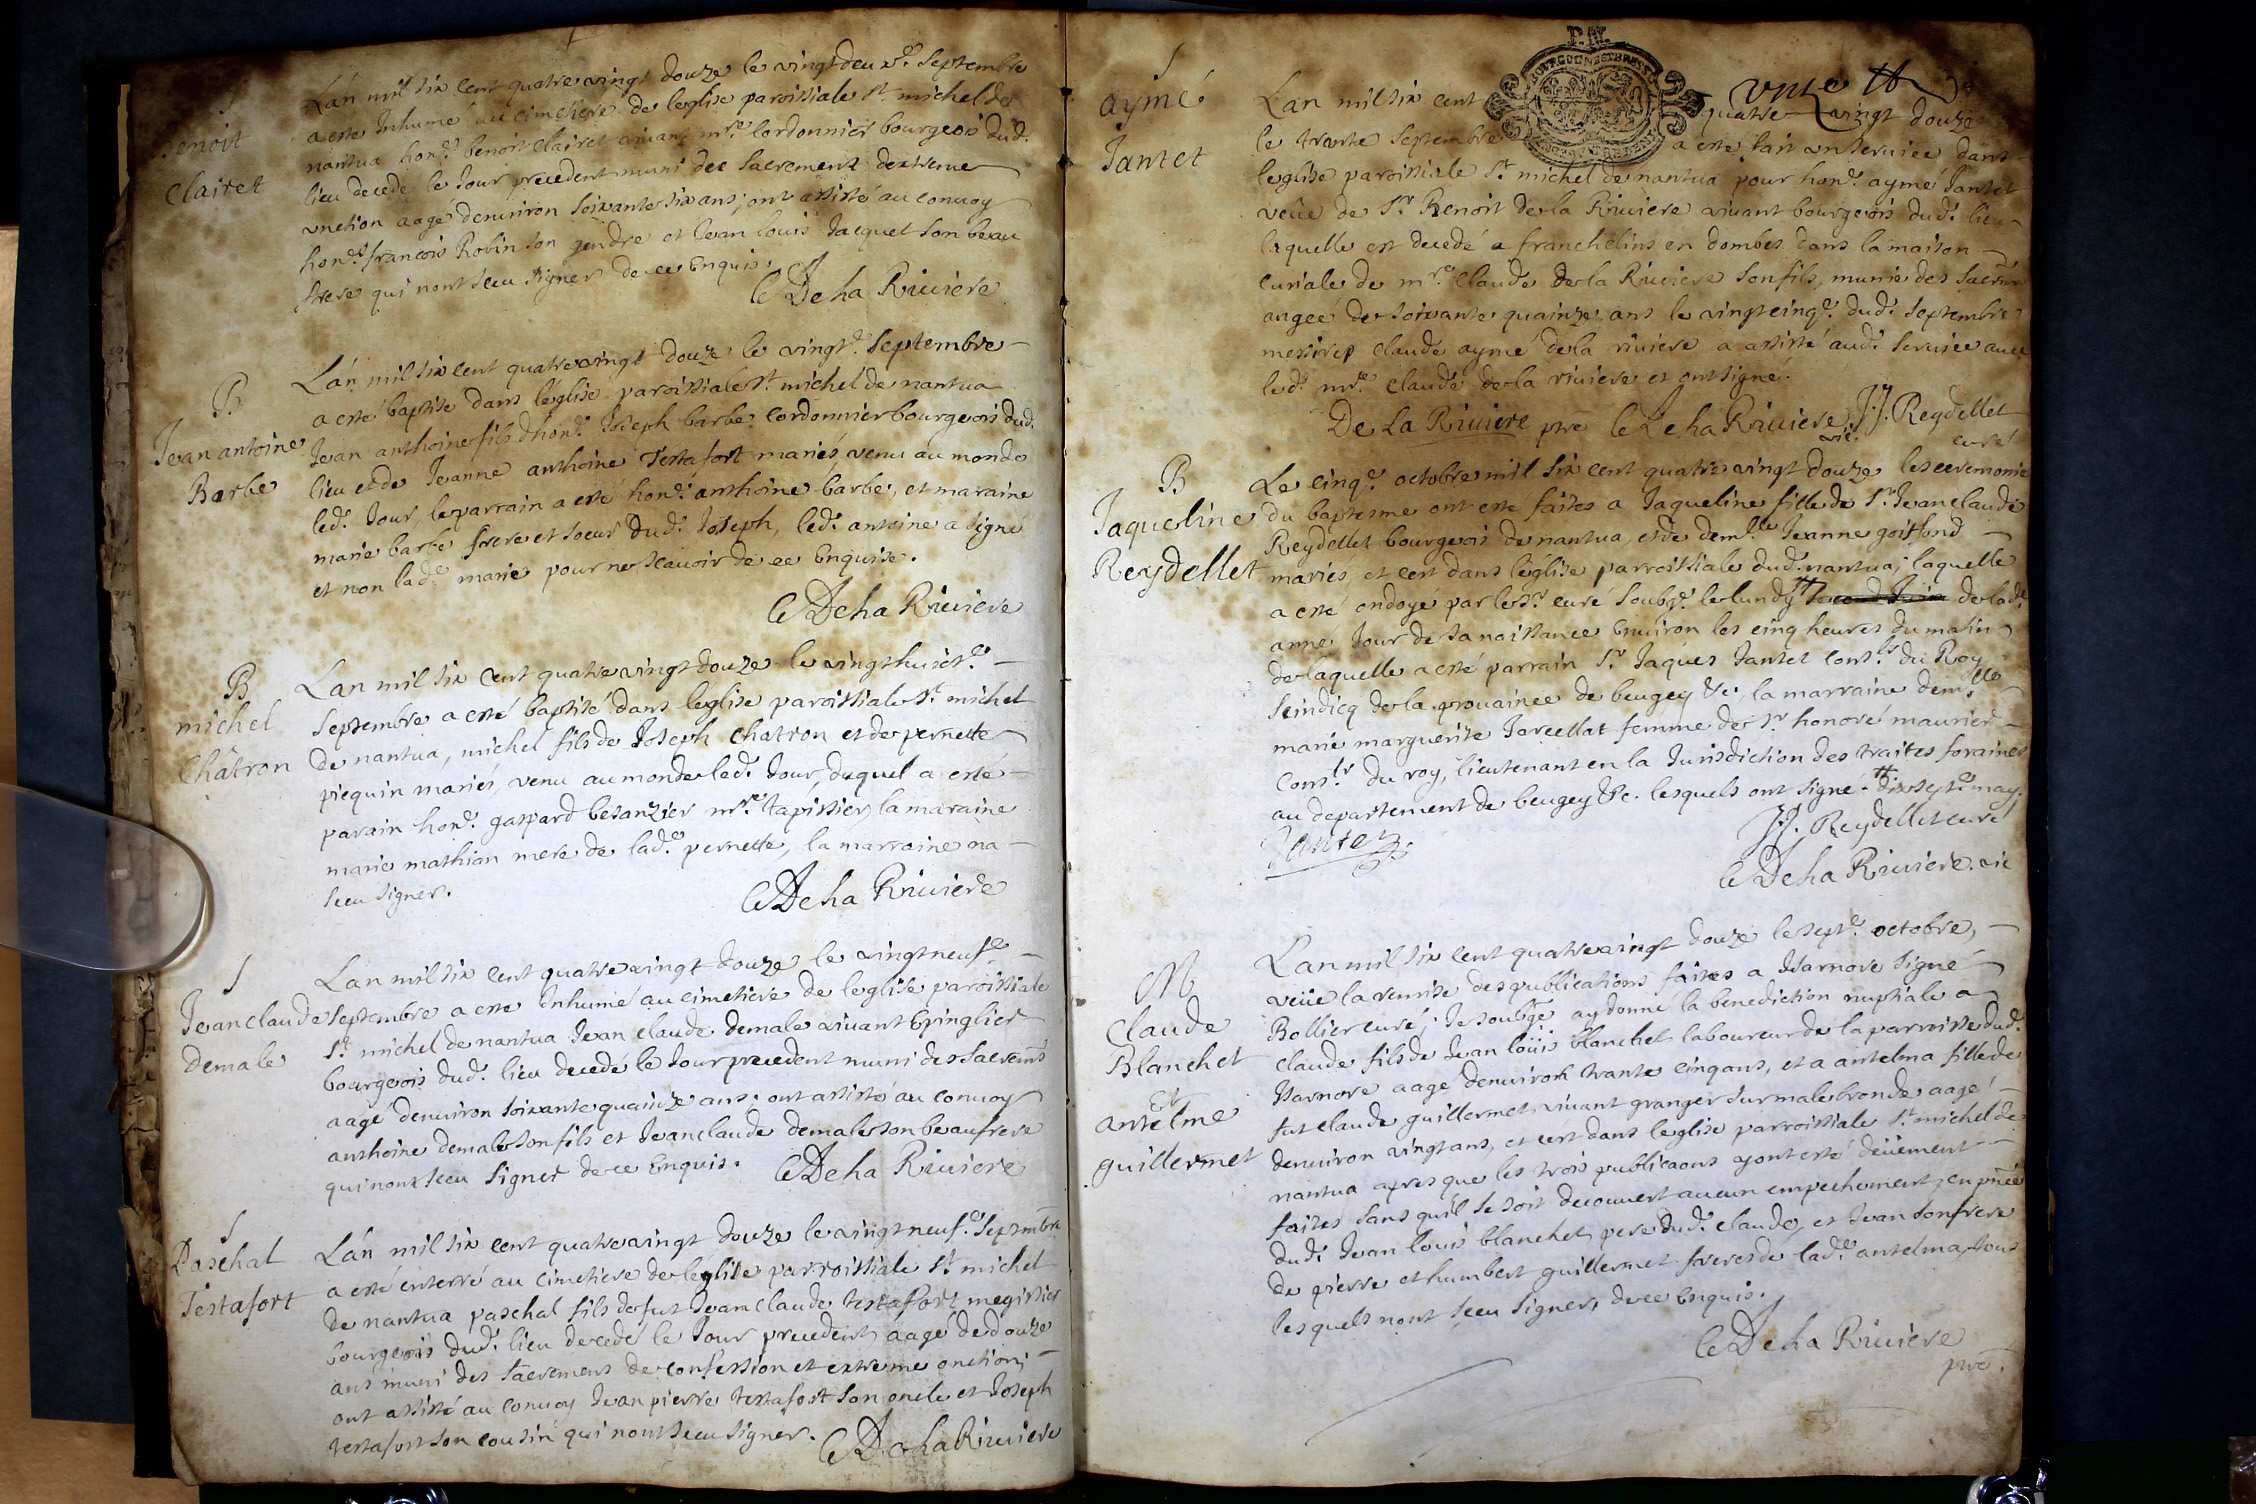 S
Benoit
Clairet
Lan mil six cent quatre vingt douze le vingtdeuxe. Septembre
a esté Inhumé au cimetiere de leglise paroissiale st. michel de
nantua hone. benoit Clairet vivant mre. Cordonnier bourgeois dud.
lieu decedé le Jour precedent muni des sacrements dextreme
unction aagé denuiron soixante six ans, ont assisté au conuoy
hone. francois Robin son gendre et Jean louis Jacquet son beau
frere qui nont sceu signer de ce Enquis.
C De la Riuiere
B
Jean antoine
Barbe
Lan mil six cent quatre vingt douze le vingte. Septembre
a esté baptisé dans leglise paroissiale st. michel de nantua
Jean anthoine fils dhone. Joseph barbe cordonnier bourgeois dud.
lieu et de Jeanne anthoine Testafort mariés, venu au monde
led. Jour, le parrain a esté hone. anthoine barbe, et maraine
marie barbe frere et soeur dud. Joseph, led. antoine a signé
et non lade. marie pour ne scauoir de ce Enquise.
C De la Riuiere
B
michel
Châtron
Lan mil six cent quatre vingt douze le vingthuicte.
Septembre a esté baptisé dans leglise paroissiale st. michel
de nantua, michel fils de Joseph Chatron et de pernette
piequin mariés, venu au monde led. Jour, duquel a esté
parain hone. gaspard besanzier mre. tapissier, la maraine
marie mathian mere de lade. pernette, la marraine na
sceu signer.
C De la Riuiere
S
Jean claude
Demale
Lan mil six cent quatre vingt douze le vingtneufe.
Septembre a esté Inhumé au cimetiere de leglise paroissiale
st. michel de nantua Jean claude demale viuant Epinglier
bourgeois dud. lieu decedé le Jour precedent muni des sacrements
aagé denuiron soixante quainze ans; ont assisté au conuoy
anthoine demale son fils et Jean claude demale son beaufrere
qui nont sceu signer de ce Enquis. C De la Riuiere
S
Paschal
Testafort
Lan mil six cent quatre vingt douze le vingtneufe. Septembre
a esté enterré au cimetiere de leglise parroissiale st. michel
de nantua paschal fils de fut Jean Claude testafort megissier
bourgeois dud. lieu decedé le Jour precedent, aagé de douze
ans muni des sacrements de confession et extreme onction;
ont assisté au conuoy Jean pierre testafort son oncle et Joseph
testafort son cousin qui nont sceu signer. C De la Riuiere
S
aymé
Jantet
P.M.
BOURGOGNE ET BRESSE
Lan mil six cent quatre vingt douze
le trante Septembre a esté fait un seruice dans
leglise paroissiale st. michel de nantua pour hone. aymé Jantet
veue de Sr. Benoit de la Riuiere viuant bourgeois dud. lieu
laquelle est decedé a franchelins en dombes dans la maison
curiale de mre. Claude de la Riuiere son fils, munie des sacrem
aagée de soixante quainze ans le vingtcinqe. dud. Septembre
messire claude aymé de la riuiere a assisté aud. seruice auec
led. mre. claude de la riuiere et ont signé.
De La Riuiere ptre C De la Riuiere vic. JJ. Reydellet
curé
B
Jaqueline
Reydellet
Le cinqe. octobre mil six cent quatre vingt douze les ceremonies
du baptesme ont esté faites a Jaqueline fille de Sr. Jean claude
Reydellet bourgeois de nantua, et de demlle. Jeanne goiffond
mariés, et cest dans leglise parroissiale dud. nantua; laquelle
a esté ondoyé par le Sr. curé soubze. le lundy de lade.
anne Jour de sa naissance Enuiron les cinq heures du matin
de laquelle a esté parrain Sr. Jaques Jantet conser. du Roy
Seindicq de la prouaince de beugey &c. la marraine demlle.
marie marguerite Jarcellat femme de Sr. honoré maurier
conser. du roy, lieutenant en la Jurisdiction des traites foraines
au departement de beugey &c. lesquels ont signé. dixsepte. may.
Jantet
JJ. Reydellet curé
C De la Riuiere. vic
M
Claude
Blanchet
Et
antelme
guillermet
Lan mil six cent quatre vingt douze le septe. octobre,
veüe la remise des publications faites a Isarnore signé
Bollier curé; Je soubzge. ay donné la benediction nuptiale a
claude fils de Jean loüis blanchet laboureur de la parroisse dud.
Isarnore aagé denuiron trante cinq ans, et a antelma fille de
fut claude guillermet viuant granger sur malebronde aagé
denuiron vingt ans, et cest dans leglise parroissiale st. michel de
nantua apres que les trois publicaons ayont esté deüement
faites sans quil se soit decouuert aucun empechement, en pnce
dud. Jean louis blanchet, pere dud. claude, et Jean son frere
de pierre et humbert guillermet freres de lade. antelma, tous
lesquels nont sceu signer, de ce Enquis.
C De la Riuiere
ptre.